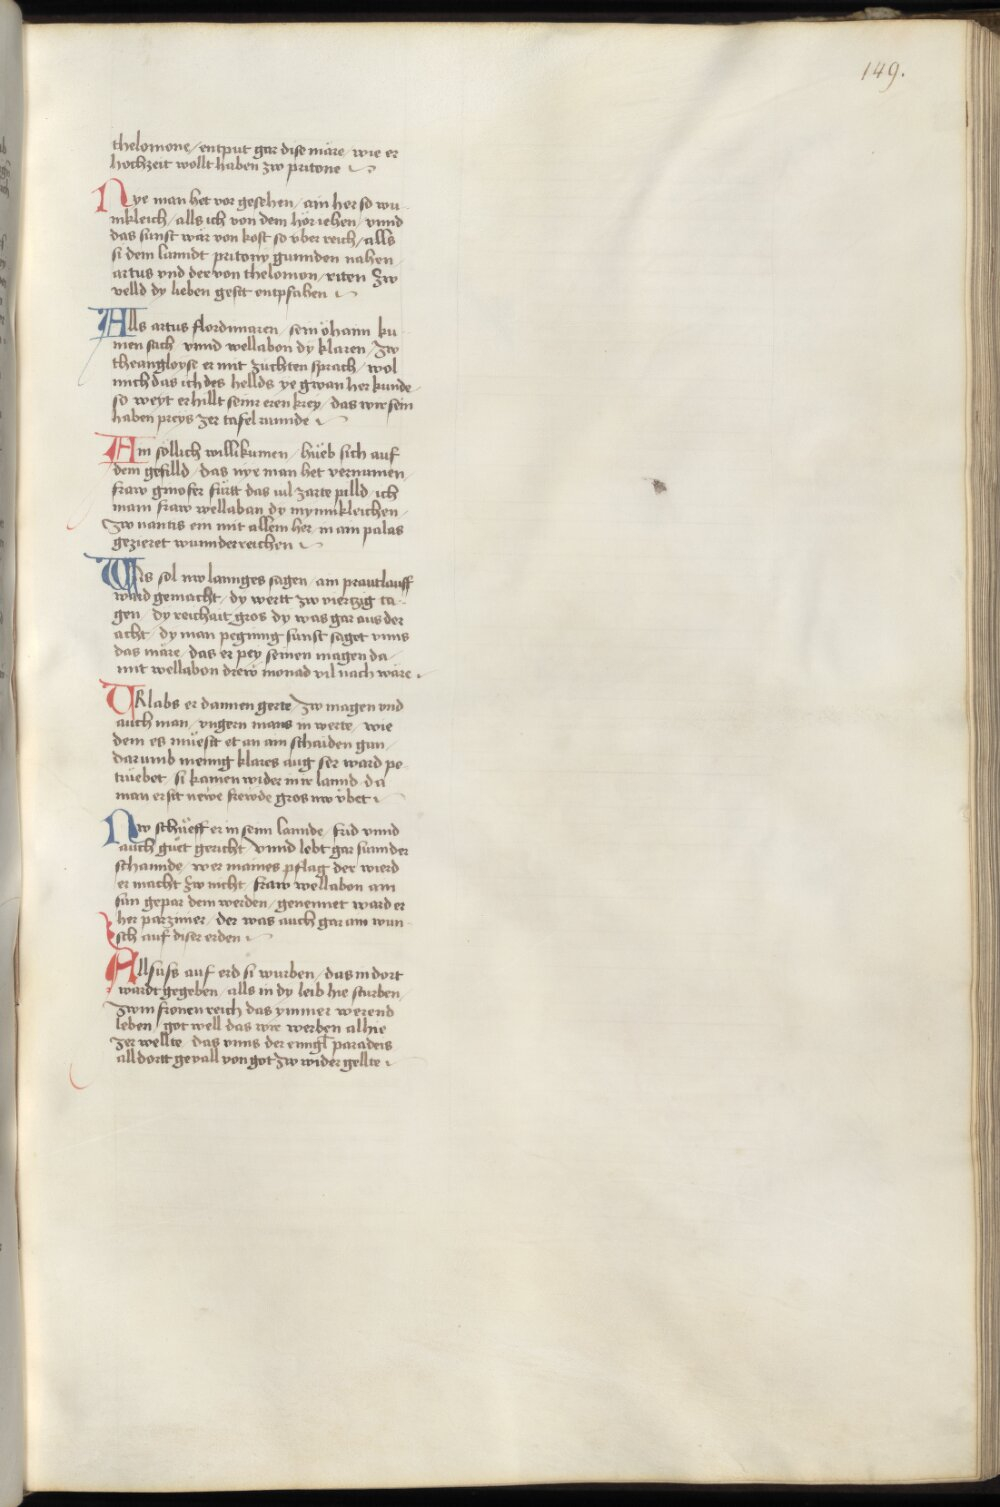 149.
thelomone / entput gar dise märe / wie er
hochzeit wollt haben zw pritone
Nye man het vor gesehen / ain her so wu-
nnkleich / alls ich von dem hör iehen / vnnd
das sunst wär von kost so vber reich / alls
si dem lanndt pritony gunnden nahen
artus vnd der von thelomon / riten zw
velld dy lieben gesst entpfahen
Alls artus flordimaren / sein öhann ku-
men sach / vnnd wellabon dy klaren / zw
theangloyse er mit züchten sprach / wol
mich das ich des hellds ye gwan her kunde
so weyt erhillt seinr eren krey / das wir sein
haben preys zer tafelrunnde
Ain söllich willikumen / hüeb sich auf
dem gefilld / das nye man het vernumen
fraw ginofer fürtt das vil zarte pilld / ich
main fraw wellaban dy mynnikleichen
zw nantis ein mit allem her / in ain palas
gezieret wunnderreichen
Was sol nw lannges sagen / ain prautlauff
ward gemacht / dy wertt zw viertzig ta-
gen / dy reichait gros dy was gar aus der
acht / dy man peginng sunst saget vnns
das märe / das er pey seinen magen da
mit wellabon drew monad vil nach wäre
Urlabs er dannen gerte / zw magen vnd
auch man / vngern mans in werte / wie
dem es müesst et an ain schaiden gan /
darumb mennig klares aug ser ward pe-
trüebet / si kamen wider in ir lannd / da
man ersst newe frewde gros nw vbet
Nw schüeff er in seim lannde / frid vnnd
auch güet gericht / vnnd lebt gar sunnder
schannde / wer maines pflag der wierd
er macht zw nicht / fraw wellabon ain
sun gepar dem werden / genennet ward er
her parzimer / der was auch gar ain wun-
sch auf diser erden
Allsuss auf erd si wurben / das in dort
wardt gegeben / alls in dy leib hie sturben
zwm fronen reich das ymmer werend
leben / got well das wir werben allhie
zer wellte / das vnns der enngl paradeis
alldortt gevall von got zw wider gellte